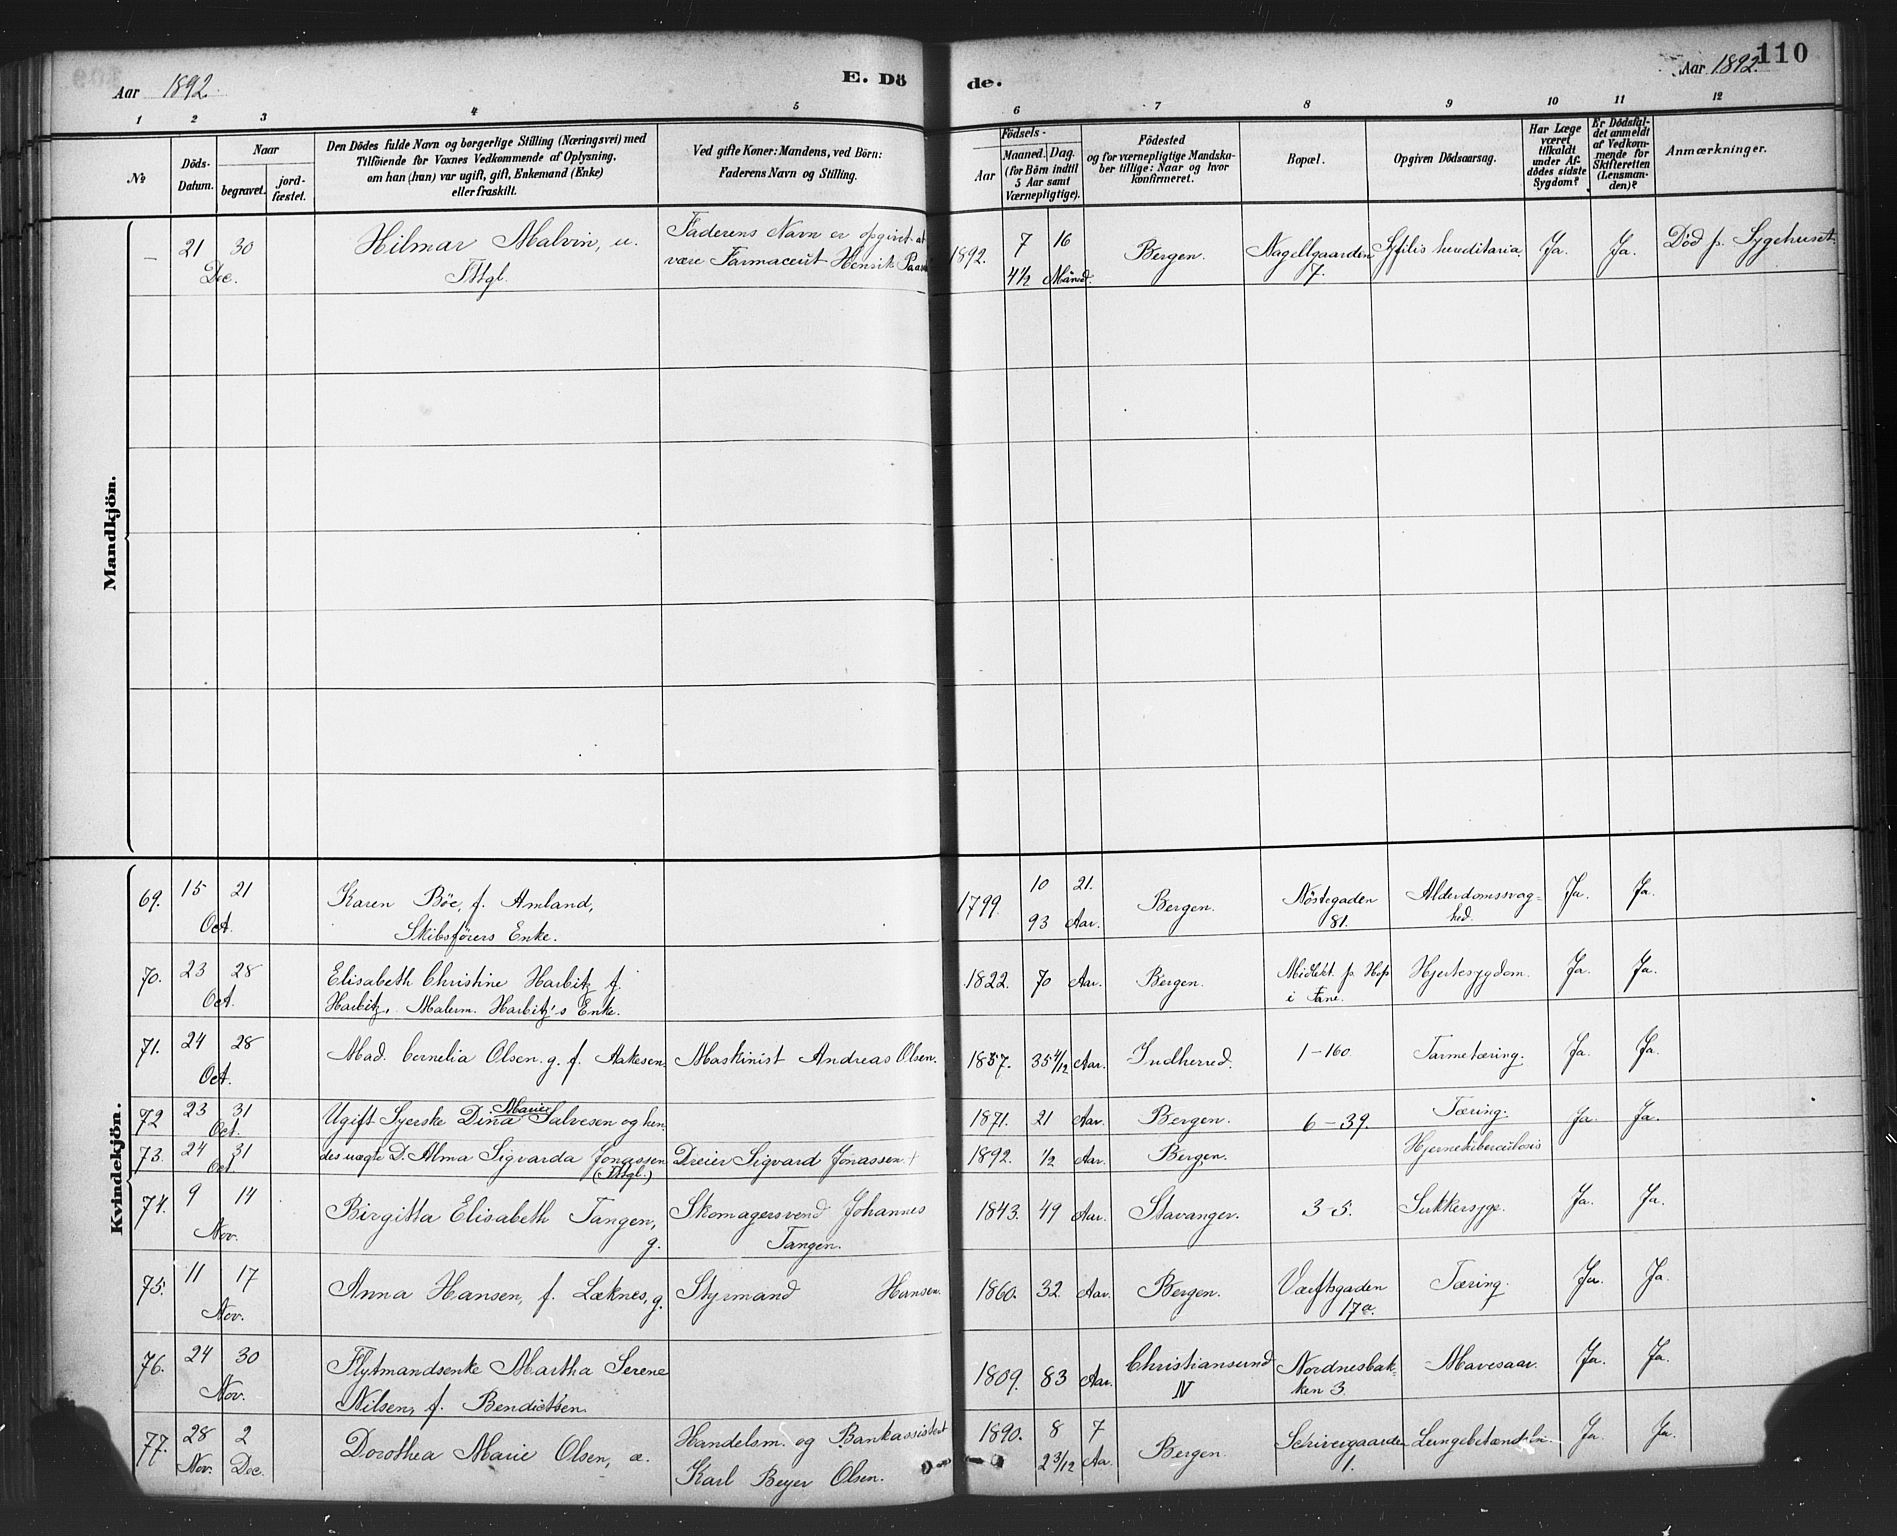 110
Aar 1892.
E. Dö
de.
Aar 1892.
1 2 3 4 5 6 7 8 9 10 11 12
№
Döds-Datum.
Naar
begravet.
jord-fæstet.
Den Dödes fulde Navn og borgerlige Stilling (Næringsvei) med
Tilföiende for Voxnes Vedkommende af Oplysning,
om han (hun) var ugift, gift, Enkemand (Enke)
eller fraskilt.
Ved gifte Koner: Mandens, ved Börn:
Faderens Navn og Stilling.
Födsels-
Aar
Maaned. Dag.
(for Börn indtil
5 Aar samt
Værnepligtige).
Födested
og for værnepligtige Mandska-
ber tillige: Naar og hvor
konfirmeret.
Bopæl.
Opgiven Dödsaarsag.
Har Læge
været
tilkaldt
under Af-
dödes sidste
Sygdom?
Er Dödsfal-
det anmeldt
af Vedkom-
mende for
Skifteretten
(Lensman-
den)?
Anmærkninger.
Mandkjön.
– 21 30 Hilmar Malvin, u. Faderens Navn er opgivet at 1892. 7 16 Bergen. Nagellgaarden Syfilis hereditaria. Ja. Ja. Död p. Sygehuset.
Dec. Tttgl. være Farmaceut Henrik 4½ Måned. 7.
Kvindekjön.
69. 15 21 Karen Böe, f. Amland, 1799. 10 21. Bergen. Nöstegaden Alderdomssvag- Ja. Ja.
Oct. Skibsförers Enke. 93 Aar. 81. hed.
70. 23 28 Elisabeth Christine Harbitz f. 1822. 70 Aar. Bergen. Midlert. p. Hop Hjertesygdom. Ja. Ja.
Oct. Harbitz, Malerm. Harbitz's Enke. i Fane.
71. 24 28 Mad. Cornelia Olsen. g. f. Aakesen. Maskinist Andreas Olsen. 1857. 35 4/12 Aar. Indherred. 1–160. Tarmetæring. Ja. Ja.
Oct.
72 23 31 Ugift Syerske Dina Marie Salvesen og hen- 1871. 21 Aar. Bergen. 6–39. Tæring. Ja. Ja.
Oct.
73. 24 31 des uægte D. Alma Sigvarda Jonassen Dreier Sigvard Jonassen 1892. ½ Aar. Bergen. Hjernetuberculosis
Oct (Tttgl.)
74. 9 14 Birgitta Elisabeth Tangen, Skomagersvend Johannes 1843. 49 Aar. Stavanger. 3–5. Sukkersyge. Ja. Ja.
Nov. g. Tangen.
75. 11 17 Anna Hansen, f. Læknes, g. Styrmand Hansen. 1860. 32 Aar. Bergen. Værftsgaden Tæring. Ja. Ja.
Nov. 17a.
76. 24 30 Flytmandsenke Martha Serene 1809. 83 Aar. Christianssund Nordnesbak- Mavesaar. Ja. Ja.
Nov. Nilsen, f. Bendictsen. N ken 3.
77. 28 2 Dorothea Marie Olsen, æ. Handelsm. og Bankassistent 1890. 8 7 Bergen. Scrivergaarden Lungebetændelse. Ja. Ja.
Nov. Dec. Karl Beyer Olsen. 2 3/12 Aar. 1.